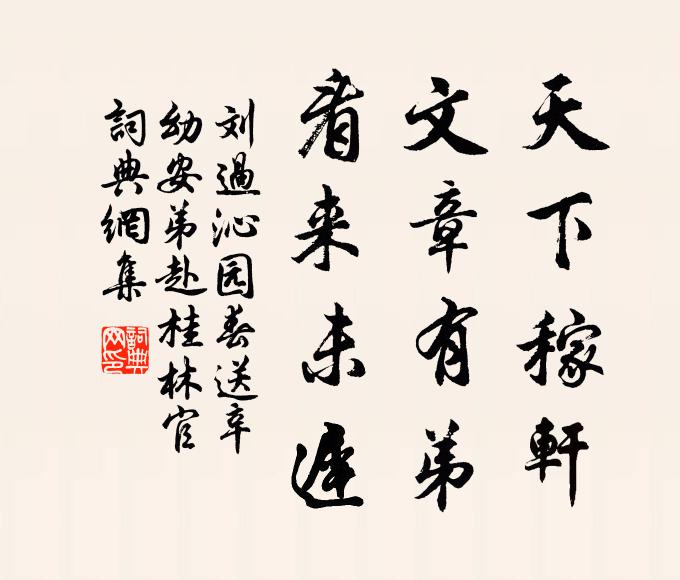 天下稼軒
文章有弟
看来未遲
刘過沁园春送辛
幼安弟赴桂林官
詞典網集
詞典網印